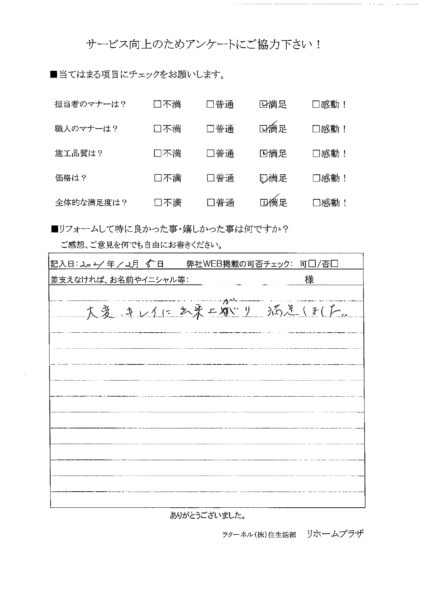 サービス向上のためアンケートにご協力下さい！
■当てはまる項目にチェックをお願いします。
担当者のマナーは？ □不満 □普通 ☑満足 □感動！
職人のマナーは？ □不満 □普通 ☑満足 □感動！
施工品質は？ □不満 □普通 ☑満足 □感動！
価格は？ □不満 □普通 ☑満足 □感動！
全体的な満足度は？ □不満 □普通 ☑満足 □感動！
■リフォームして特に良かった事・嬉しかった事は何ですか？
ご感想、ご意見を何でも自由にお書きください。
記入日：2021年12月5日 弊社WEB掲載の可否チェック： 可□/否□
差支えなければ、お名前やイニシャル等： 様
大変、キレイに出来上がり 満足しました。
ありがとうございました。
ラクーネル（株）住生活部 リホームプラザ